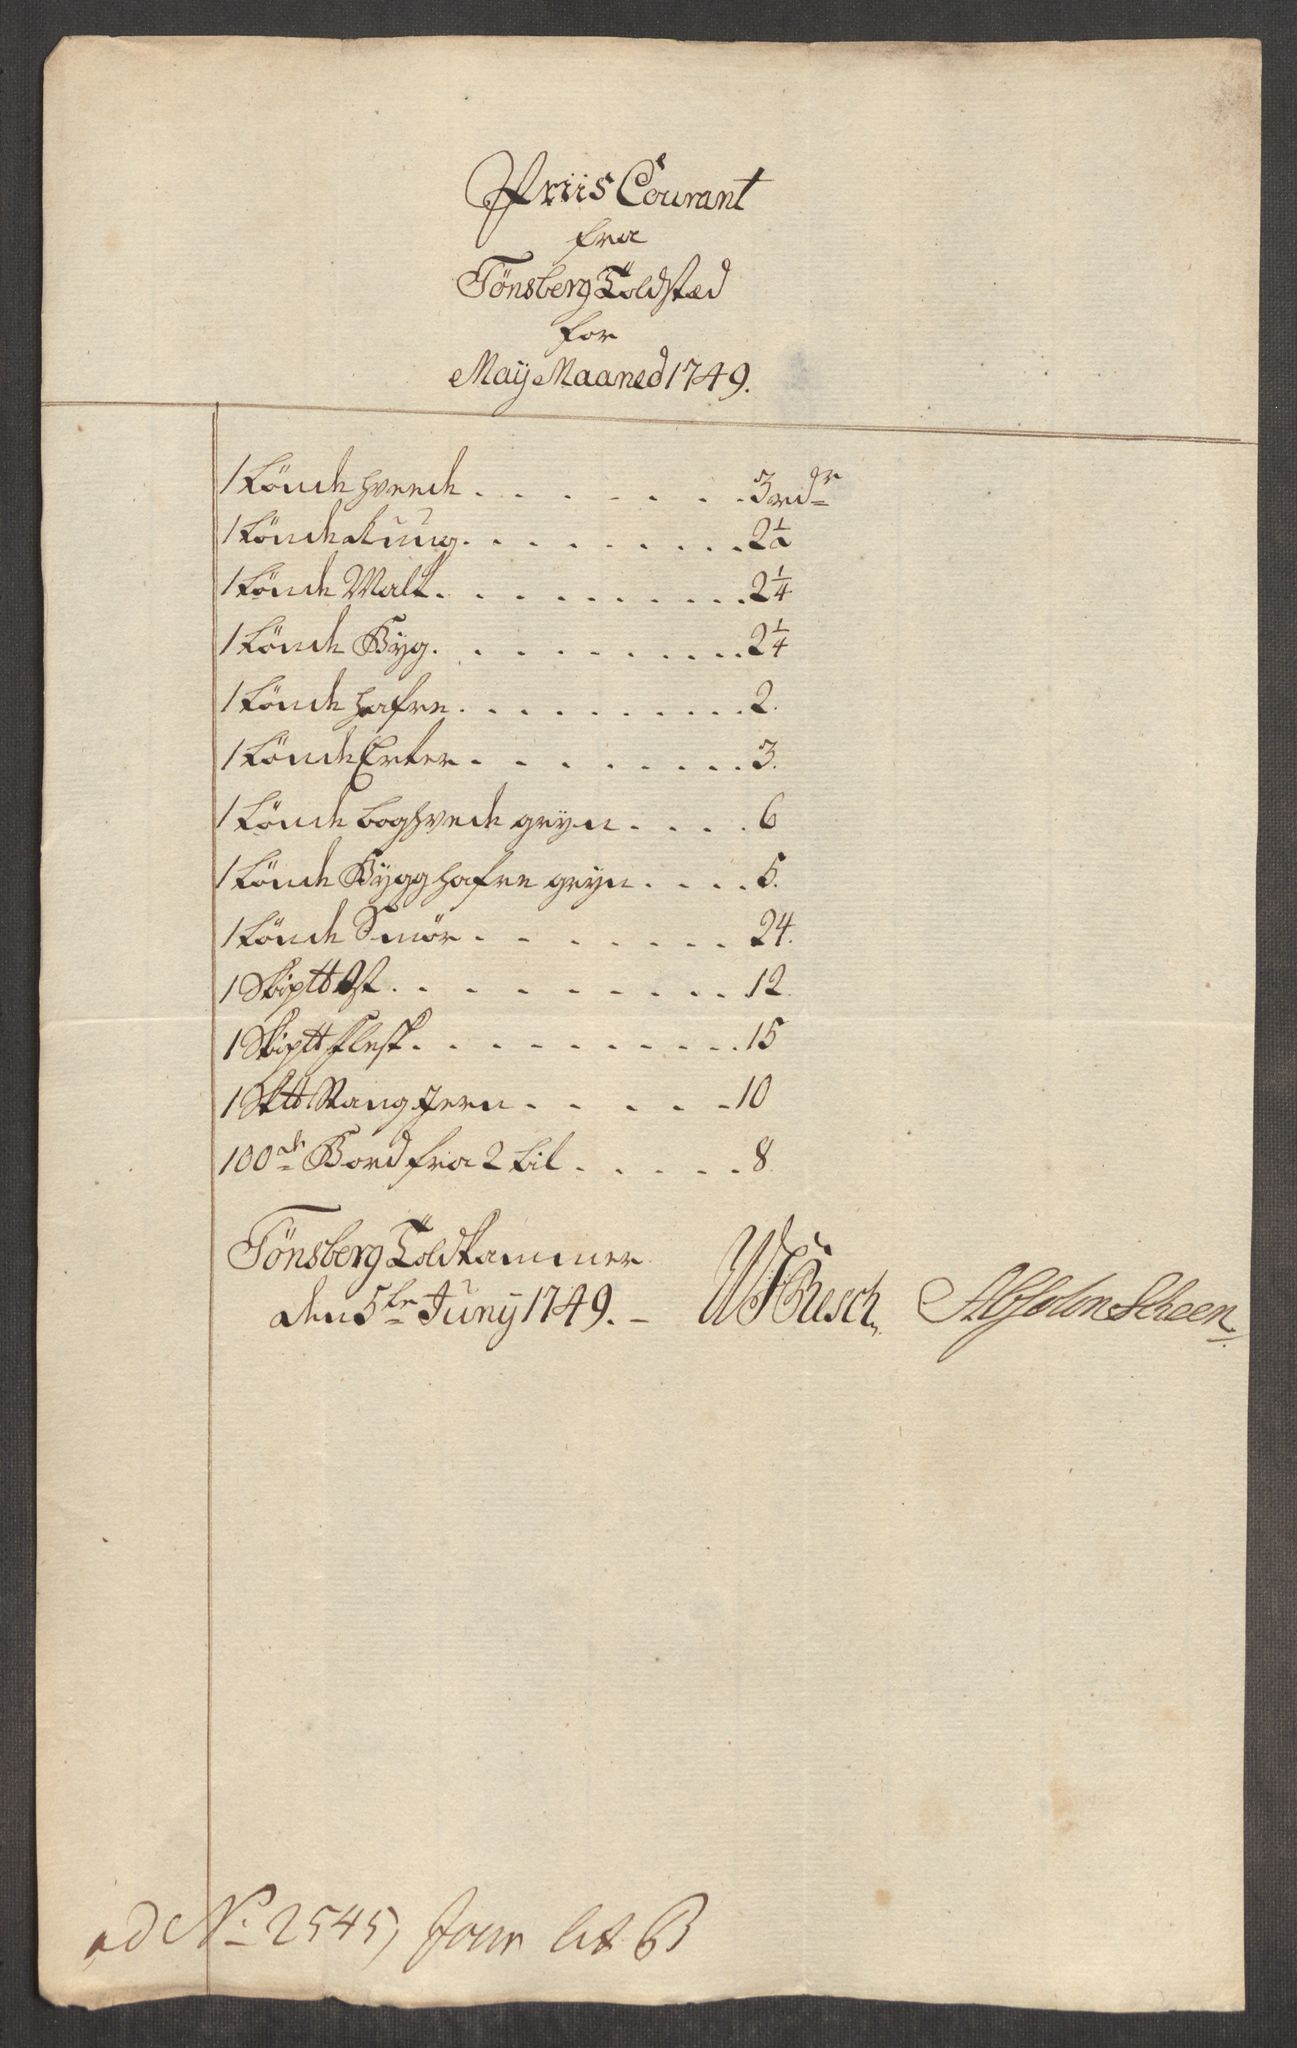 Priis Courant
fra
Tönsberg Toldstæd
for
Maÿ Maaned 1749.
1 tønde hvede . . . . . . . 3 rdr
1 tønde Ruug . . . . . . . . . 2 1/2
1 tønde Malt . . . . . . . . . . 2 1/4
1 tønde Byg . . . . . . . . . . 2 1/4
1 tønde hafre . . . . . . . . . 2.
1 tønde Erter . . . . . . . . . 3.
1 tønde boghvede gryn . . . . 6
1 tønde Bygg hafre gryn . . . . 5.
1 tønde Smör . . . . . . . 24.
1 Skip℔ Ost . . . . . . . . . . 12.
1 Skip℔ Flesk . . . . . . . . . . 15
1 Sk℔ Stang Jern . . . . . . 10
100de Bord fra 2 til . . . . . . 8.
Tönsberg Toldkammer
den 5te Junÿ 1749. – WFResch. Absolon Scheen.
ad No. 2545, Jour lit B